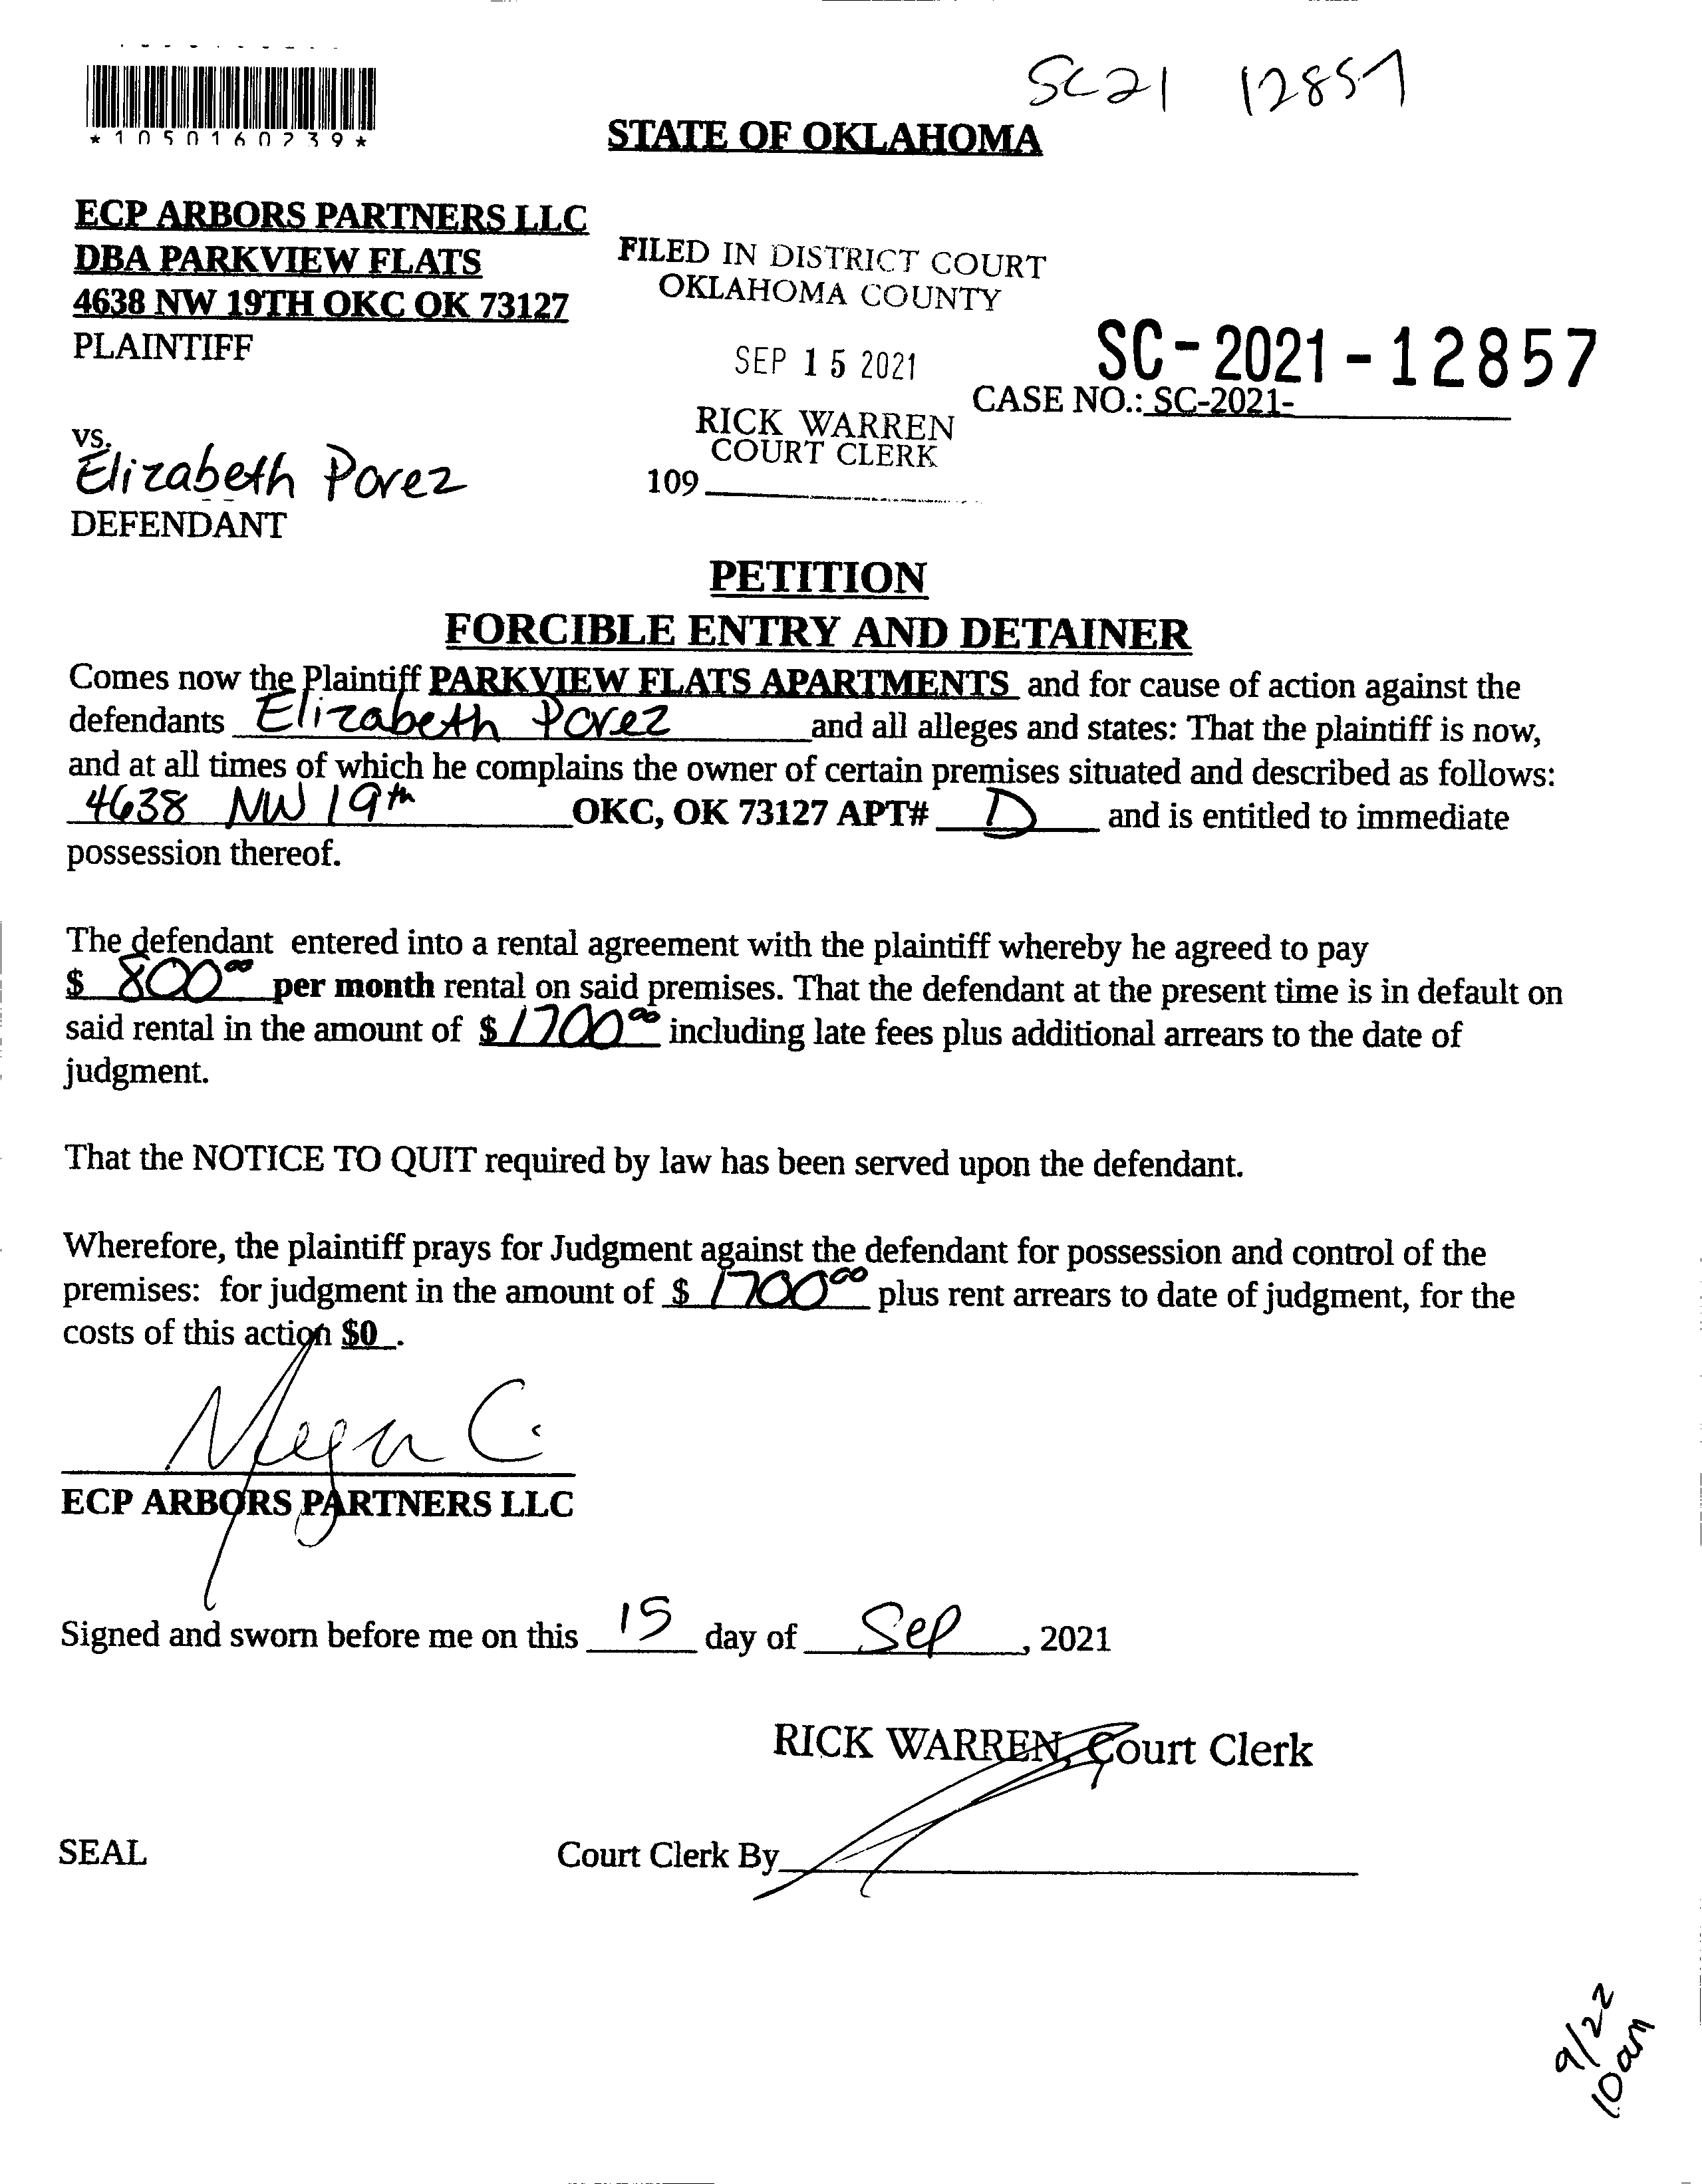 SC21 12857
*1050160239*
STATE OF OKLAHOMA
ECP ARBORS PARTNERS LLC
DBA PARKVIEW FLATS
4638 NW 19TH OKC OK 73127
PLAINTIFF
FILED IN DISTRICT COURT
OKLAHOMA COUNTY
SEP 15 2021
SC-2021-12857
CASE NO.: SC-2021-
RICK WARREN
COURT CLERK
109
vs.
Elizabeth Porez
DEFENDANT
PETITION
FORCIBLE ENTRY AND DETAINER
Comes now the Plaintiff PARKVIEW FLATS APARTMENTS and for cause of action against the
defendants Elizabeth Porez and all alleges and states: That the plaintiff is now,
and at all times of which he complains the owner of certain premises situated and described as follows:
4638 NW 19th OKC, OK 73127 APT# D and is entitled to immediate
possession thereof.
The defendant entered into a rental agreement with the plaintiff whereby he agreed to pay
$ 800.00 per month rental on said premises. That the defendant at the present time is in default on
said rental in the amount of $ 1700.00 including late fees plus additional arrears to the date of
judgment.
That the NOTICE TO QUIT required by law has been served upon the defendant.
Wherefore, the plaintiff prays for Judgment against the defendant for possession and control of the
premises: for judgment in the amount of $ 1700.00 plus rent arrears to date of judgment, for the
costs of this action $0 .
Megan C.
ECP ARBORS PARTNERS LLC
Signed and sworn before me on this 15 day of Sep, 2021
RICK WARREN, Court Clerk
SEAL
Court Clerk By
9/22
10am